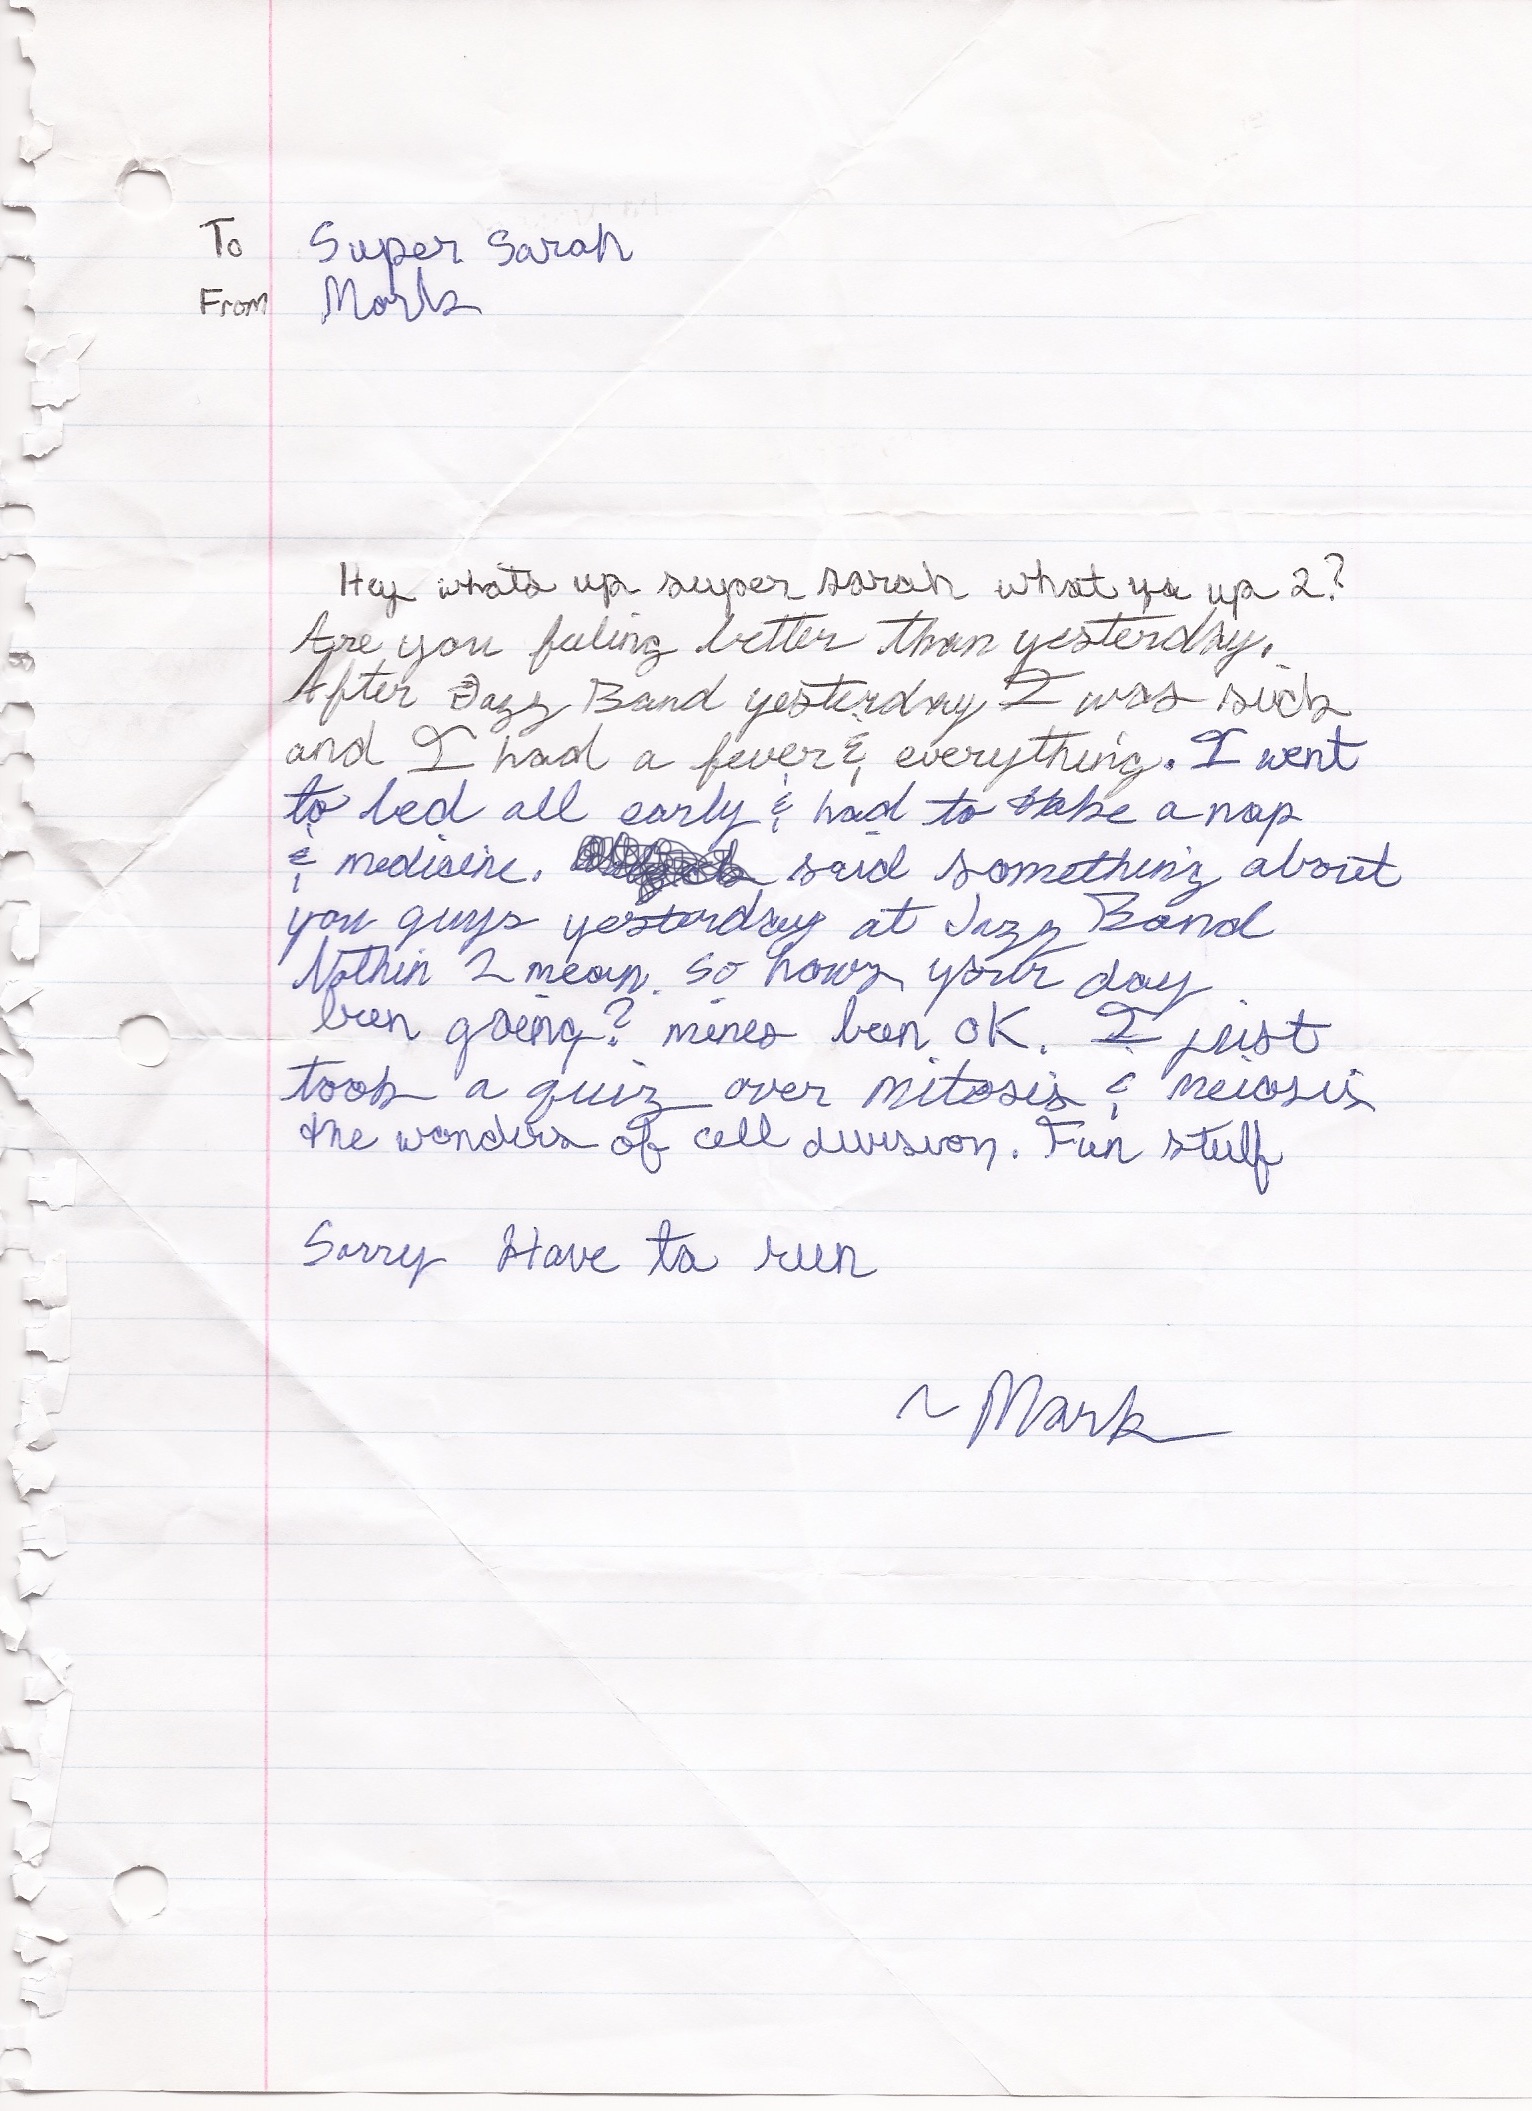 To Super Sarah
From Mark
Hey whats up super sarah what ya up 2?
Are you feeling better than yesterday.
After Jazz Band yesterday I was sick
and I had a fever & everything. I went
to bed all early & had to take a nap
& medicine. said something about
you guys yesterday at Jazz Band
Nothin 2 mean. So hows your day
been going? mines been OK. I just
took a quiz over mitosis & meiosis
the wonders of cell division. Fun stuff
Sorry Have ta run
~ Mark